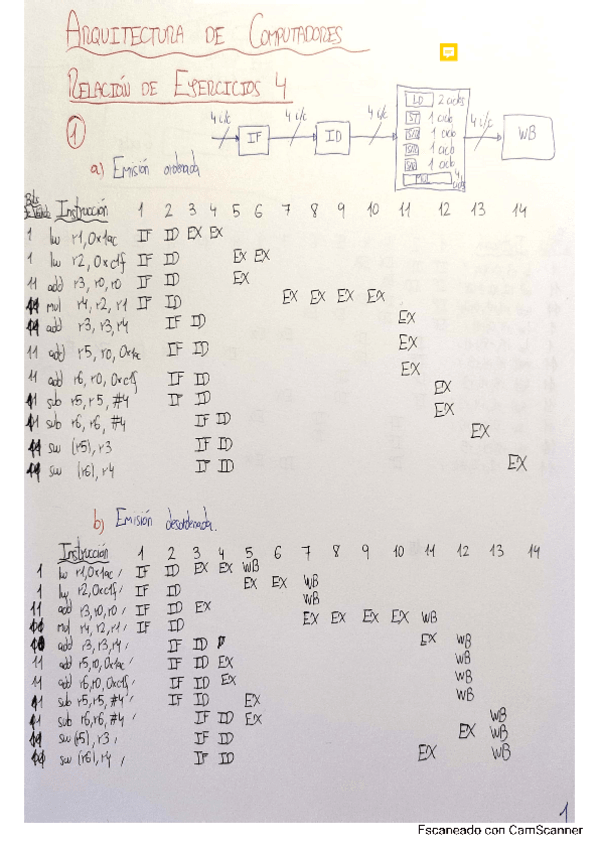 ARQUITECTURA DE COMPUTADORES
RELACIÓN DE EJERCICIOS 4
1
4 i/c IF 4 i/c ID 4 i/c 4 i/c WB
LD 2 ciclos
ST 1 ciclo
1 ciclo
1 ciclo
1 ciclo
MUL 4 ciclos
a) Emisión ordenada
Instrucción 1 2 3 4 5 6 7 8 9 10 11 12 13 14
1 lw r1, 0x1ac IF ID EX EX
1 lw r2, 0xc1f IF ID EX EX
11 add r3, r0, r0 IF ID EX
mul r4, r2, r1 IF ID EX EX EX EX
add r3, r3, r4 IF ID EX
11 add r5, r0, 0x1ac IF ID EX
11 add r6, r0, 0xc1f IF ID EX
sub r5, r5, #4 IF ID EX
sub r6, r6, #4 IF ID EX
sw (r5), r3 IF ID
sw (r6), r4 IF ID EX
b) Emisión desordenada.
Instrucción 1 2 3 4 5 6 7 8 9 10 11 12 13 14
1 lw r1, 0x1ac IF ID EX EX WB
1 lw r2, 0xc1f IF ID EX EX WB
11 add r3, r0, r0 IF ID EX WB
mul r4, r2, r1 IF ID EX EX EX EX WB
add r3, r3, r4 IF ID EX WB
11 add r5, r0, 0x1ac IF ID EX WB
11 add r6, r0, 0xc1f IF ID EX WB
sub r5, r5, #4 IF ID EX WB
sub r6, r6, #4 IF ID EX WB
sw (r5), r3 IF ID EX WB
sw (r6), r4 IF ID EX WB
1
Escaneado con CamScanner